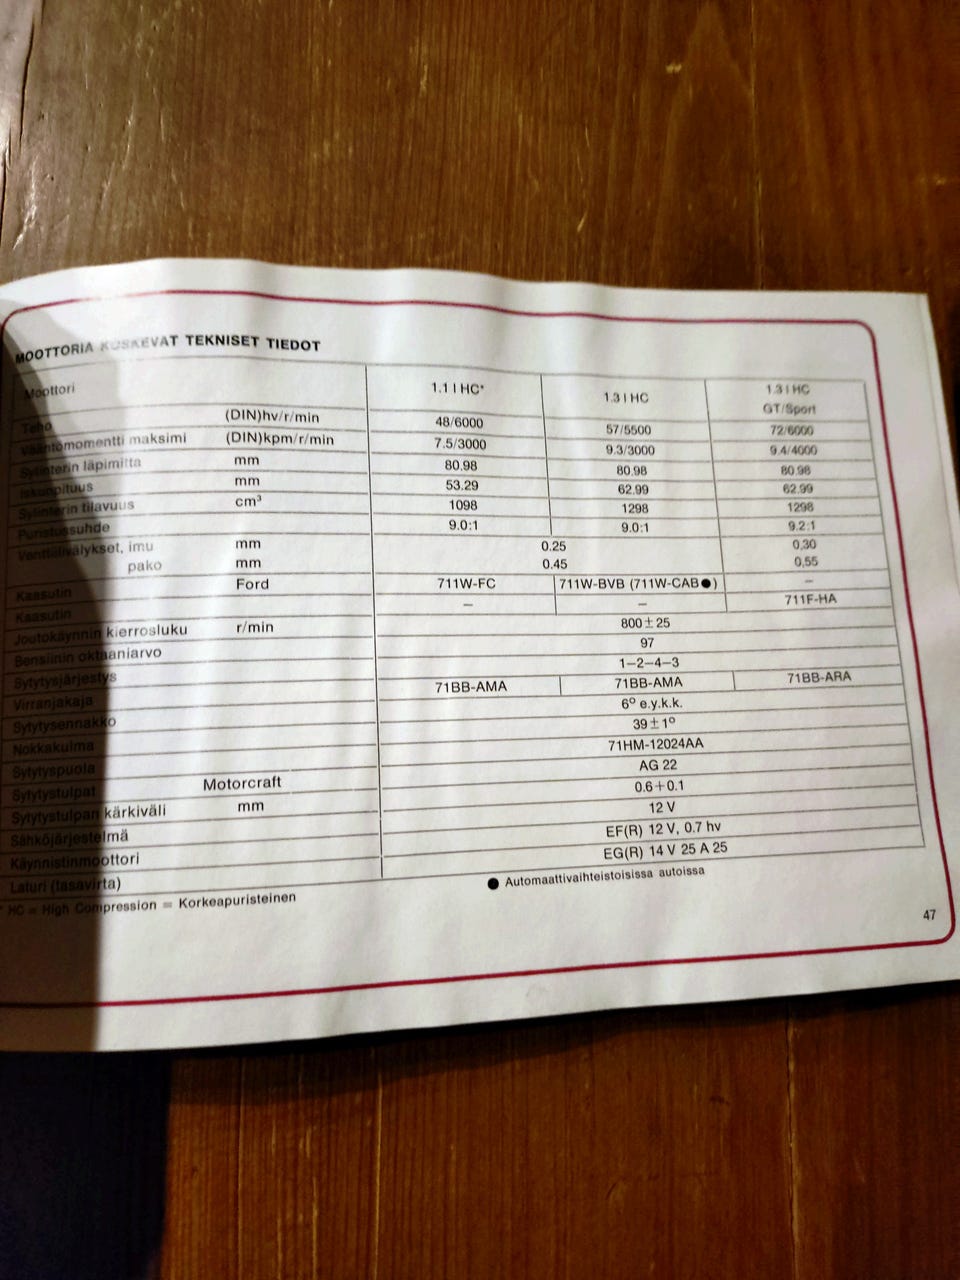 MOOTTORIA KOSKEVAT TEKNISET TIEDOT
Moottori 1.1 l HC* 1.3 l HC 1.3 l HC GT/Sport
Teho (DIN)hv/r/min 48/6000 57/5500 72/6000
Vääntömomentti maksimi (DIN)kpm/r/min 7.5/3000 9.3/3000 9.4/4000
Sylinterin läpimitta mm 80.98 80.98 80.98
Iskunpituus mm 53.29 62.99 62.99
Sylinterin tilavuus cm³ 1098 1298 1298
Puristussuhde 9.0:1 9.0:1 9.2:1
Venttiilivälykset, imu mm 0.25 0,30
pako mm 0.45 0,55
Kaasutin Ford 711W-FC 711W-BVB (711W-CAB●) –
Kaasutin – – 711F-HA
Joutokäynnin kierrosluku r/min 800±25
Bensiinin oktaaniarvo 97
Sytytysjärjestys 1–2–4–3
Virranjakaja 71BB-AMA 71BB-AMA 71BB-ARA
Sytytysennakko 6° e.y.k.k.
Nokkakulma 39±1°
Sytytyspuola 71HM-12024AA
Sytytystulpat Motorcraft AG 22
Sytytystulpan kärkiväli mm 0.6+0.1
Sähköjärjestelmä 12 V
Käynnistinmoottori EF(R) 12 V, 0.7 hv
Laturi (tasavirta) EG(R) 14 V 25 A 25
* HC = High Compression = Korkeapuristeinen ● Automaattivaihteistoisissa autoissa
47